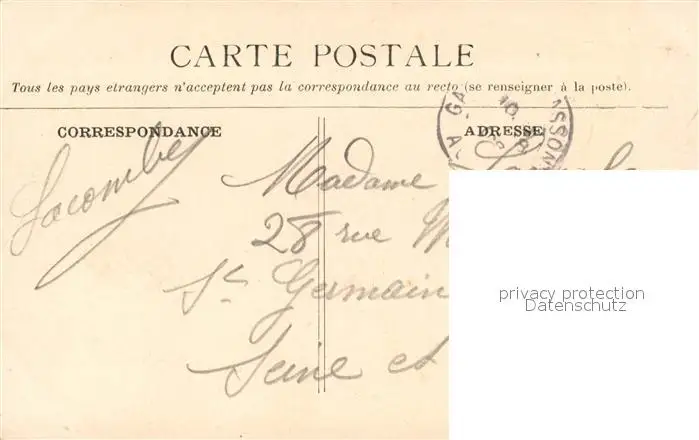 CARTE POSTALE
Tous les pays etrangers n'acceptent pas la correspondance au recto (se renseigner à la poste).
CORRESPONDANCE
ADRESSE
Lacombe
Madame
28 rue
St Germain
Seine et
privacy protection
Datenschutz